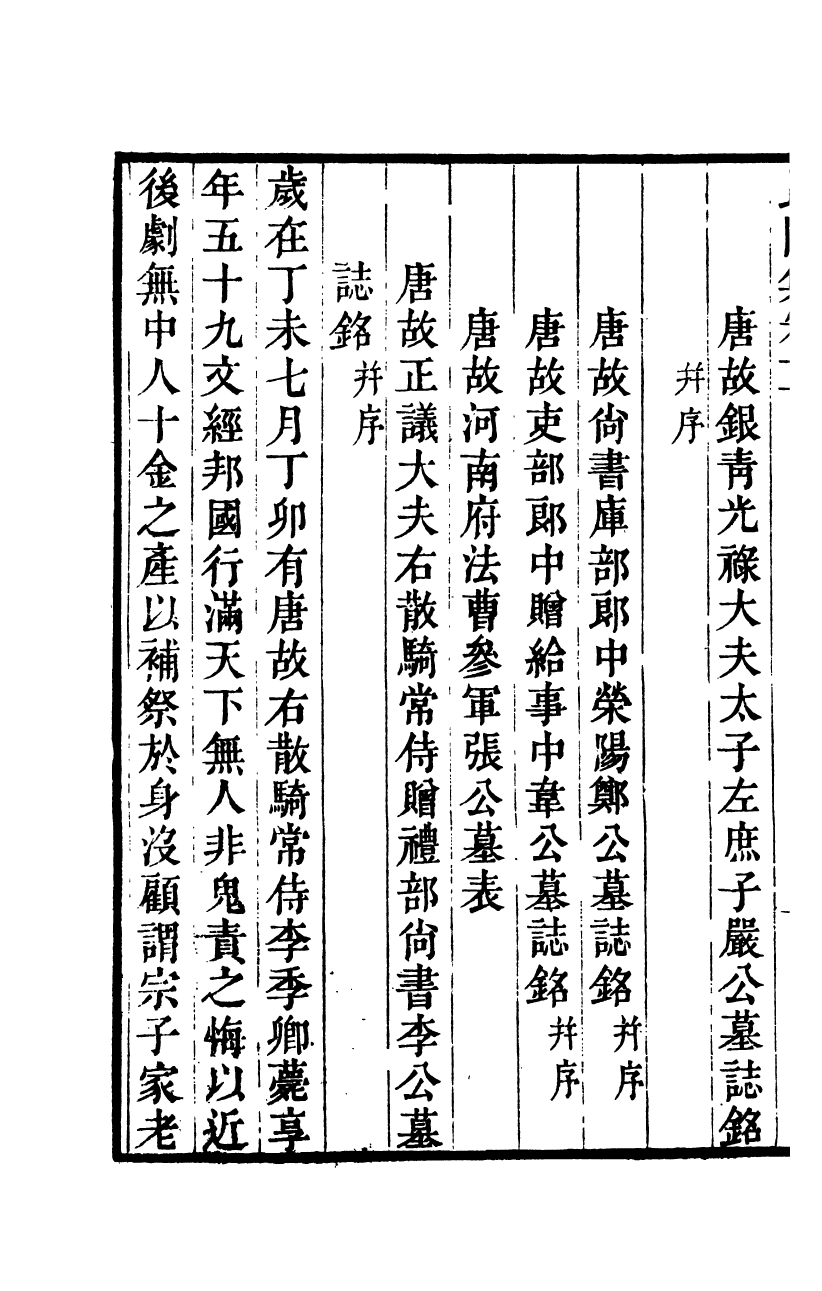 唐故銀青光祿大夫太子左庶子嚴公墓誌銘
并序
唐故尙書庫部郞中榮陽鄭公墓誌銘并序
唐故吏部郞中贈給事中韋公墓誌銘并序
唐故河南府法曹參軍張公墓表
唐故正議大夫右散騎常侍贈禮部尙書李公墓
誌銘并序
歲在丁未七月丁卯有唐故右散騎常侍李季卿薨享
年五十九文經邦國行滿天下無人非鬼責之悔以近
後劇無中人十金之產以補祭於身沒顧謂宗子家老